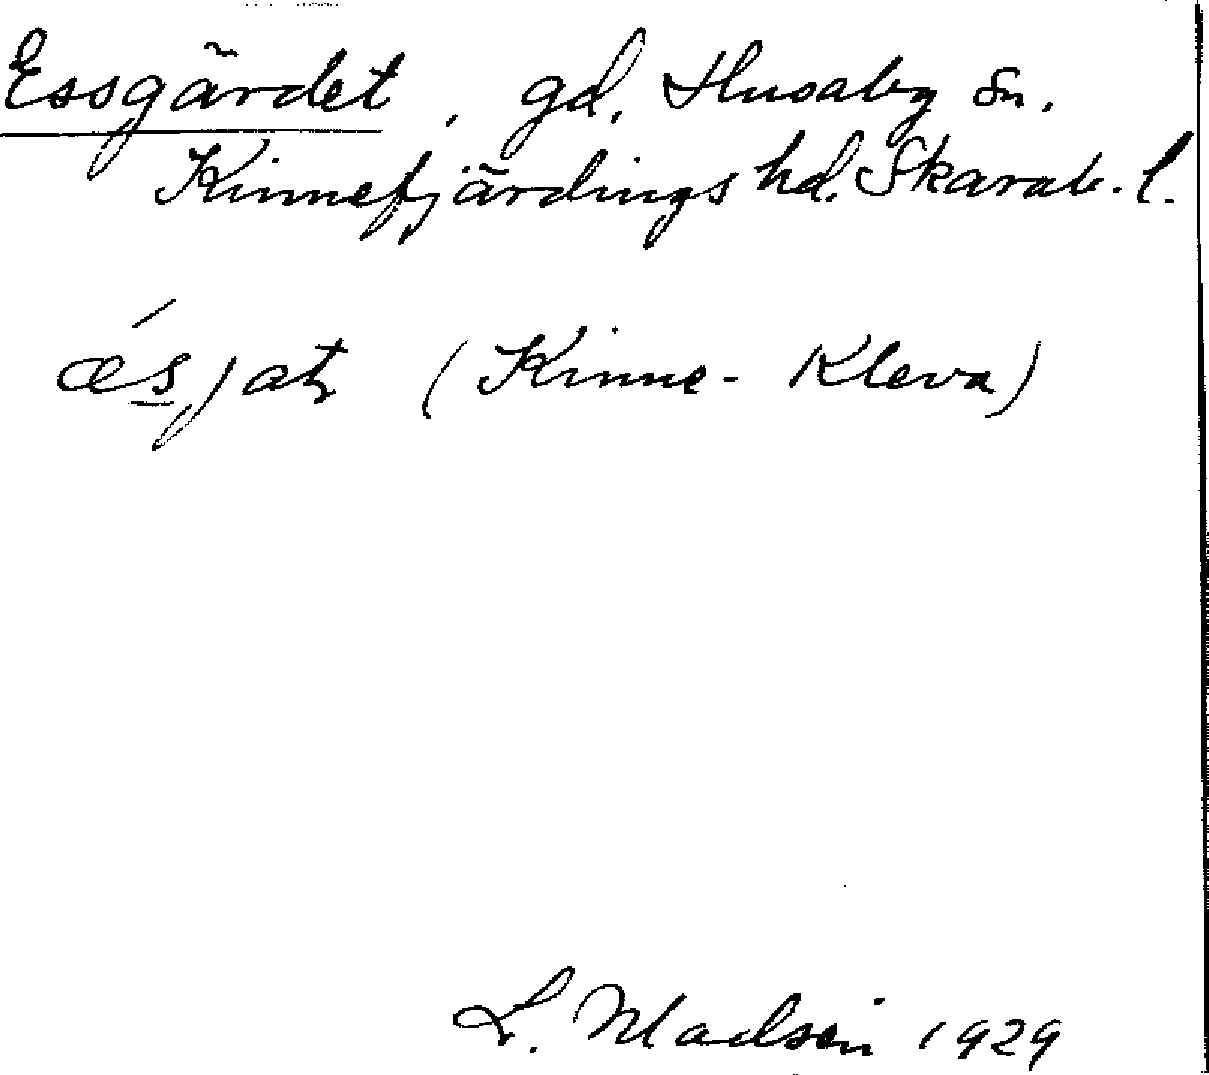 Essgärdet, gd, Husaby sn.
Kinnefjärdings hd. Skarab. l.
ǽsjat (Kinne-Kleva)
L. Madsén 1929